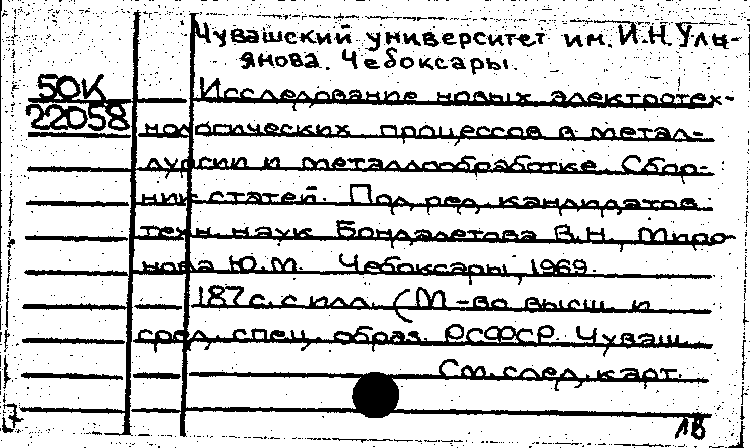 Чувашский университет им. И.Н. Уль-
янова. Чебоксары.
50К
22058
Исследование новых электротех-
нологических процессов в метал-
лургии и металлообработке. Сбор-
ник статей. Под ред. кандидатов
техн. наук Бондалетова В.Н., Миро-
нова Ю.М. Чебоксары, 1969.
187 с. с илл. (М-во высш. и
сред. спец. образ. РСФСР. Чуваш.
См. след. карт.
7
1В